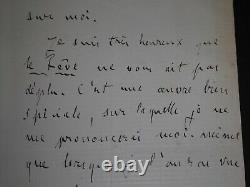 sur moi.
Je suis très heureux que
le Rêve ne vous ait pas
déplu. C'est une œuvre bien
spéciale, sur laquelle je ne
me prononcerai moi-même
que lorsque l'aura vue